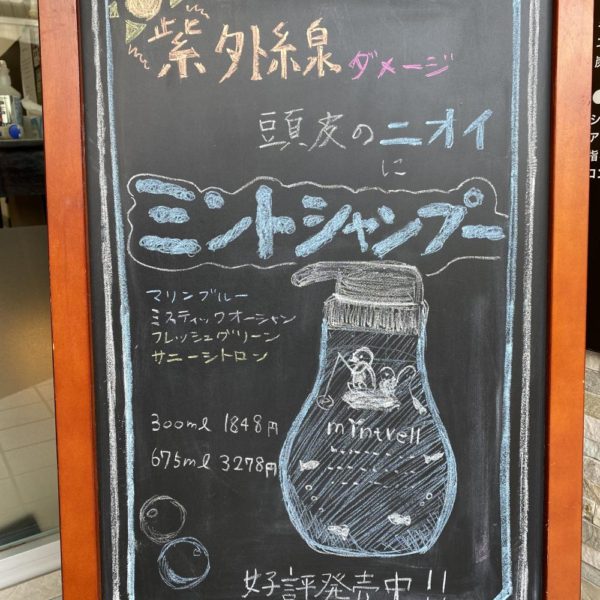 紫外線ダメージ
頭皮のニオイ
に
ミントシャンプー
マリンブルー
ミスティックオーシャン
フレッシュグリーン
サニーシトロン
300ml 1848円
675ml 3278円
mintrell
好評発売中!!